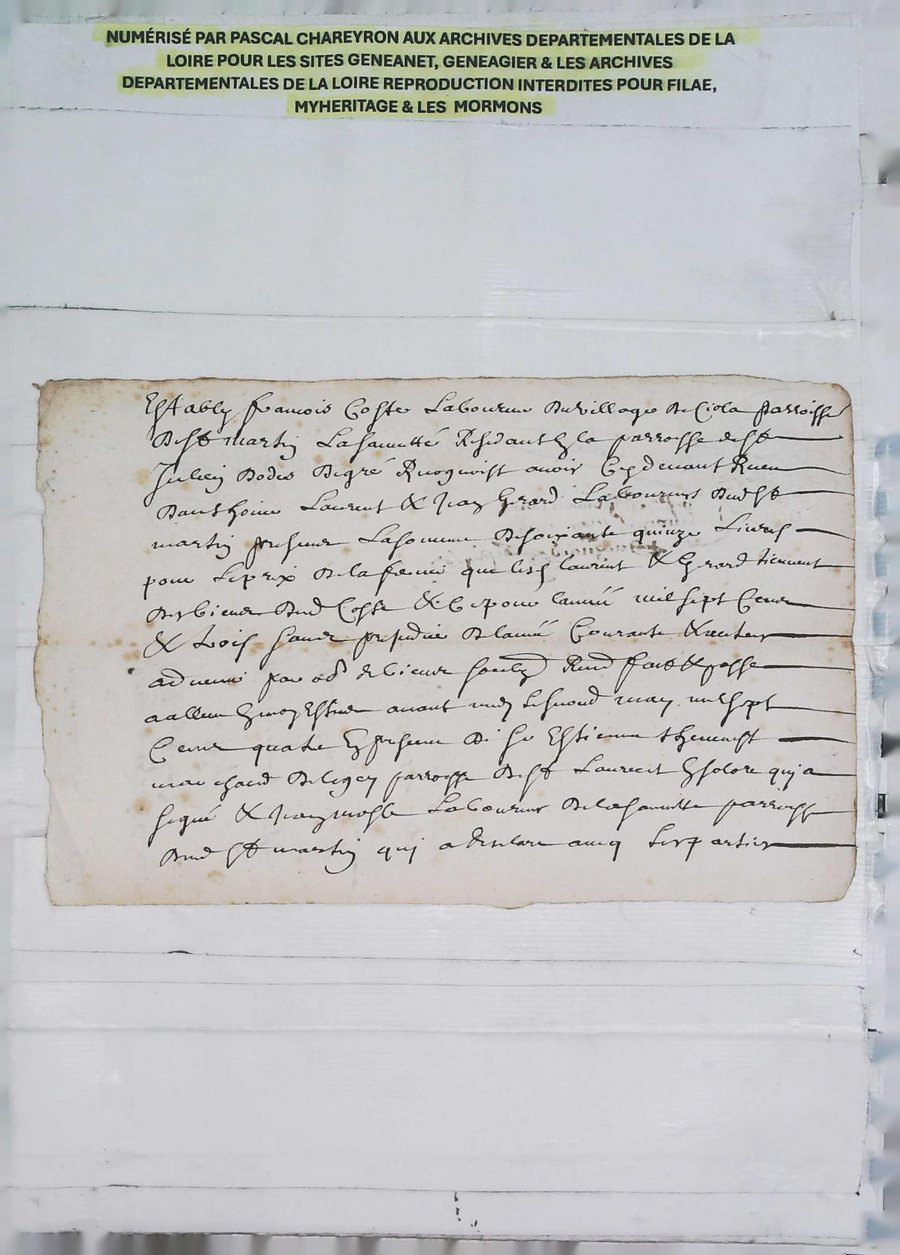 NUMÉRISÉ PAR PASCAL CHAREYRON AUX ARCHIVES DEPARTEMENTALES DE LA
LOIRE POUR LES SITES GENEANET, GENEAGIER & LES ARCHIVES
DEPARTEMENTALES DE LA LOIRE REPRODUCTION INTERDITES POUR FILAE,
MYHERITAGE & LES MORMONS
Establÿ francois Coste Laboureur du village de parroisse
de st martin Lasauveté Residant En la parroisse de st
Julien Dodes De gré Recognoist avoir Cy devant Receu
Danthoine Laurent & Jean Gerard Laboureurs Dud st
martin presens La somme De soixante quinze Livres
pour Le prix De la ferme que lesd laurent & Gerard tiennent
Des biens Dud Coste & Ce pour lannée mil sept Cens
& trois sans prejudice De lannée Courante &
advenir par de biens soubz Rend fait & passé
avant midy Le second may mil sept
Cens quatre En presence De sr Estienne
marchand De parroisse De st Laurent qui a
signé & Jean Laboureur De la sauvette parroisse
Dud st martin qui a declare avecq Les parties